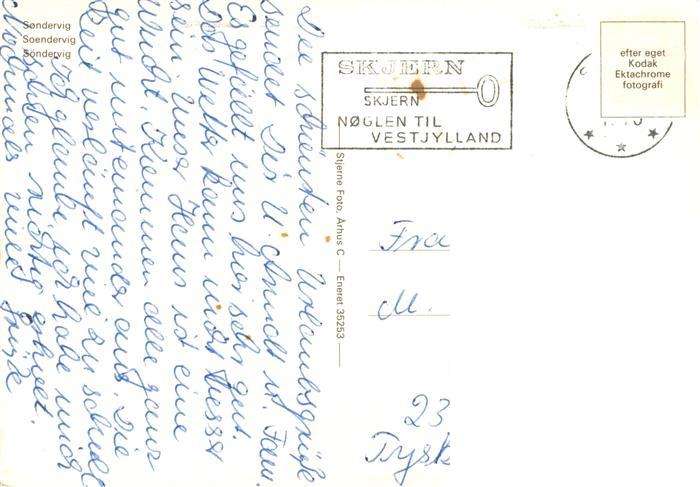 Søndervig
Soendervig
Söndervig
Die schönsten Urlaubsgrüße
sendet Dir U. Arndt u. Fam.
Es gefällt uns hier sehr gut.
Das Wetter kann nicht besser
sein. Unser Haus ist eine
Wucht. Kommen alle ganz
gut miteinander aus. Die
Zeit verläuft nur zu schnell.
Ich glaube, ich habe mich
selten richtig erholt.
Nochmals viele Grüße
Stjerne Foto, Århus C — Eneret 35253 —
SKJERN
SKJERN
NØGLEN TIL
VESTJYLLAND
efter eget
Kodak
Ektachrome
fotografi
Fra
M.
23
Tysk